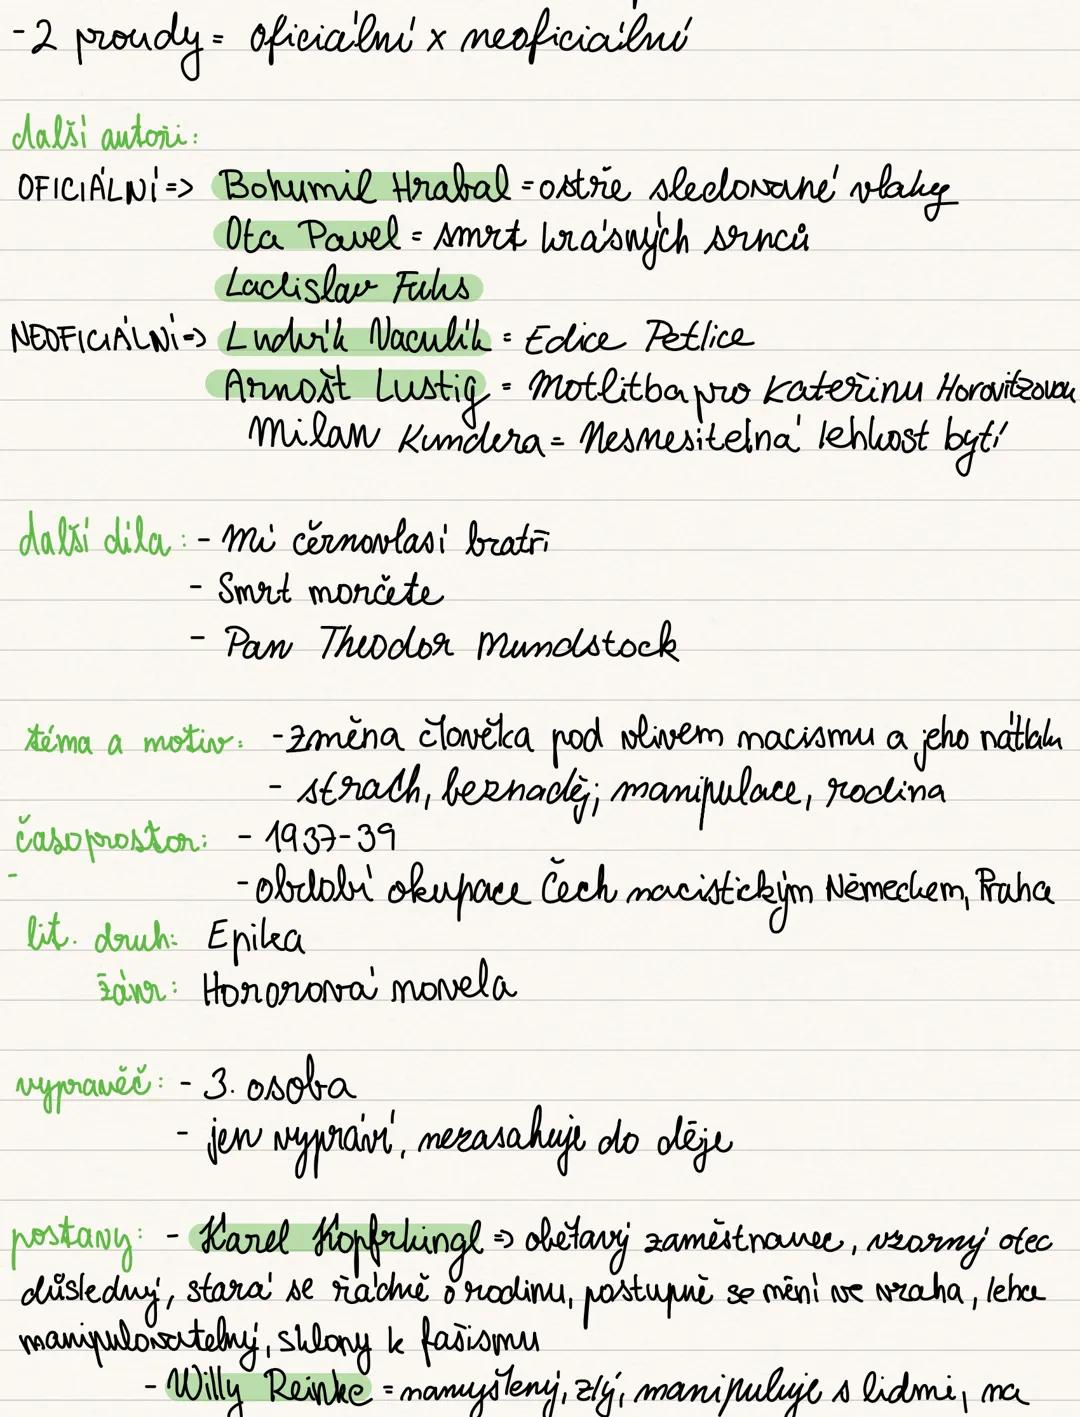 -2 proudy = oficiální x neoficiální
další autoři:
OFICIÁLNÍ => Bohumil Hrabal = ostře sledované vlaky
Ota Pavel = smrt krásných srnců
Ladislav Fuks
NEOFICIÁLNÍ => Ludvík Vaculík = Edice Petlice
Arnošt Lustig = Motlitba pro Kateřinu Horovitzovou
Milan Kundera = Nesnesitelná lehkost bytí
další díla: - Mí černovlasí bratři
- Smrt morčete
- Pan Theodor Mundstock
téma a motiv: - změna člověka pod vlivem nacismu a jeho nátlaku
- strach, beznaděj; manipulace, rodina
časoprostor: - 1937-39
- období okupace Čech nacistickým Německem, Praha
lit. druh: Epika
žánr: Hororová novela
vypravěč: - 3. osoba
- jen vypráví, nezasahuje do děje
postavy: - Karel Kopfrkingl => obětavý zaměstnanec, vzorný otec
důsledný, stará se řádně o rodinu, postupně se mění ve vraha, lehce
manipulovatelný, sklony k fašismu
- Willy Reinke = namyšlený, zlý, manipuluje s lidmi, na